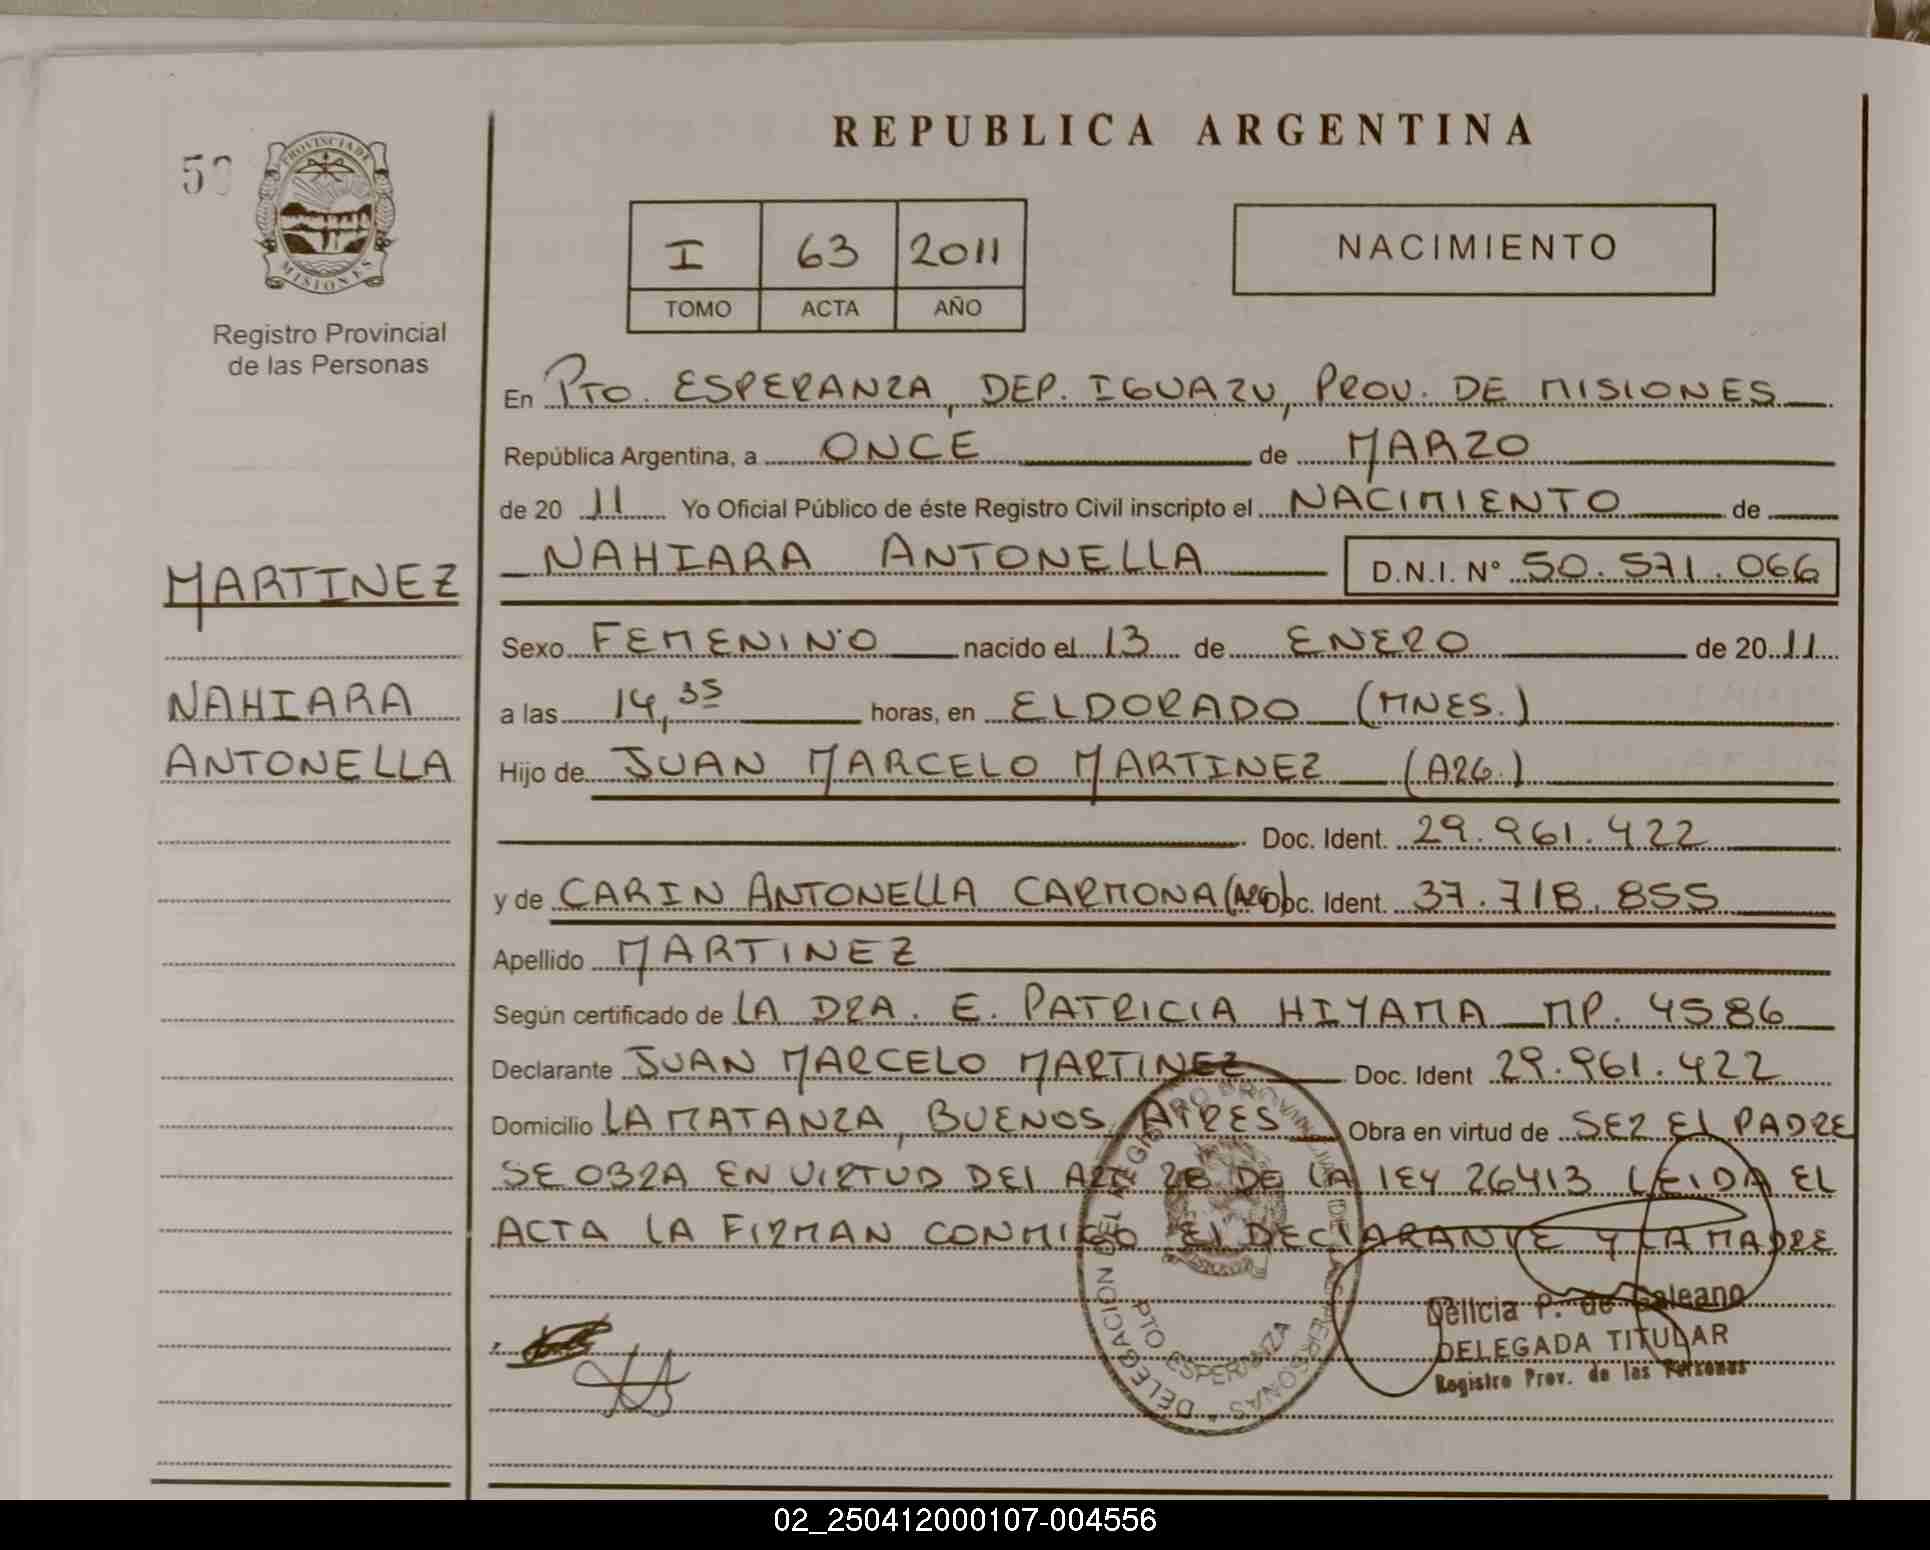 REPUBLICA ARGENTINA
PROVINCIA DE
MISIONES
Registro Provincial
de las Personas
I 63 2011
TOMO ACTA AÑO
NACIMIENTO
En PTO. ESPERANZA, DEP. IGUAZU, PROV. DE MISIONES
República Argentina, a ONCE de MARZO
de 20 11 Yo Oficial Público de éste Registro Civil inscripto el NACIMIENTO de
NAHIARA ANTONELLA D.N.I. N° 50.571.066
MARTINEZ
Sexo FEMENINO nacido el 13 de ENERO de 20 11
NAHIARA
a las 14,35 horas, en ELDORADO (MNES.)
ANTONELLA
Hijo de JUAN MARCELO MARTINEZ (ARG.)
Doc. Ident. 29.961.422
y de CARIN ANTONELLA CARMONA (ARG) Doc. Ident. 37.718.855
Apellido MARTINEZ
Según certificado de LA DRA. E. PATRICIA HIYAMA MP. 4586
Declarante JUAN MARCELO MARTINEZ Doc. Ident 29.961.422
Domicilio LA MATANZA, BUENOS AIRES Obra en virtud de SER EL PADRE
SE OBRA EN VIRTUD DEL ART 28 DE LA LEY 26413 LEIDA EL
ACTA LA FIRMAN CONMIGO EL DECLARANTE Y LA MADRE
DELEGACION DEL REGISTRO PROVINCIAL DE LAS PERSONAS
PTO ESPERANZA
Delicia P. de Galeano
DELEGADA TITULAR
Registro Prov. de las Personas
02_250412000107-004556